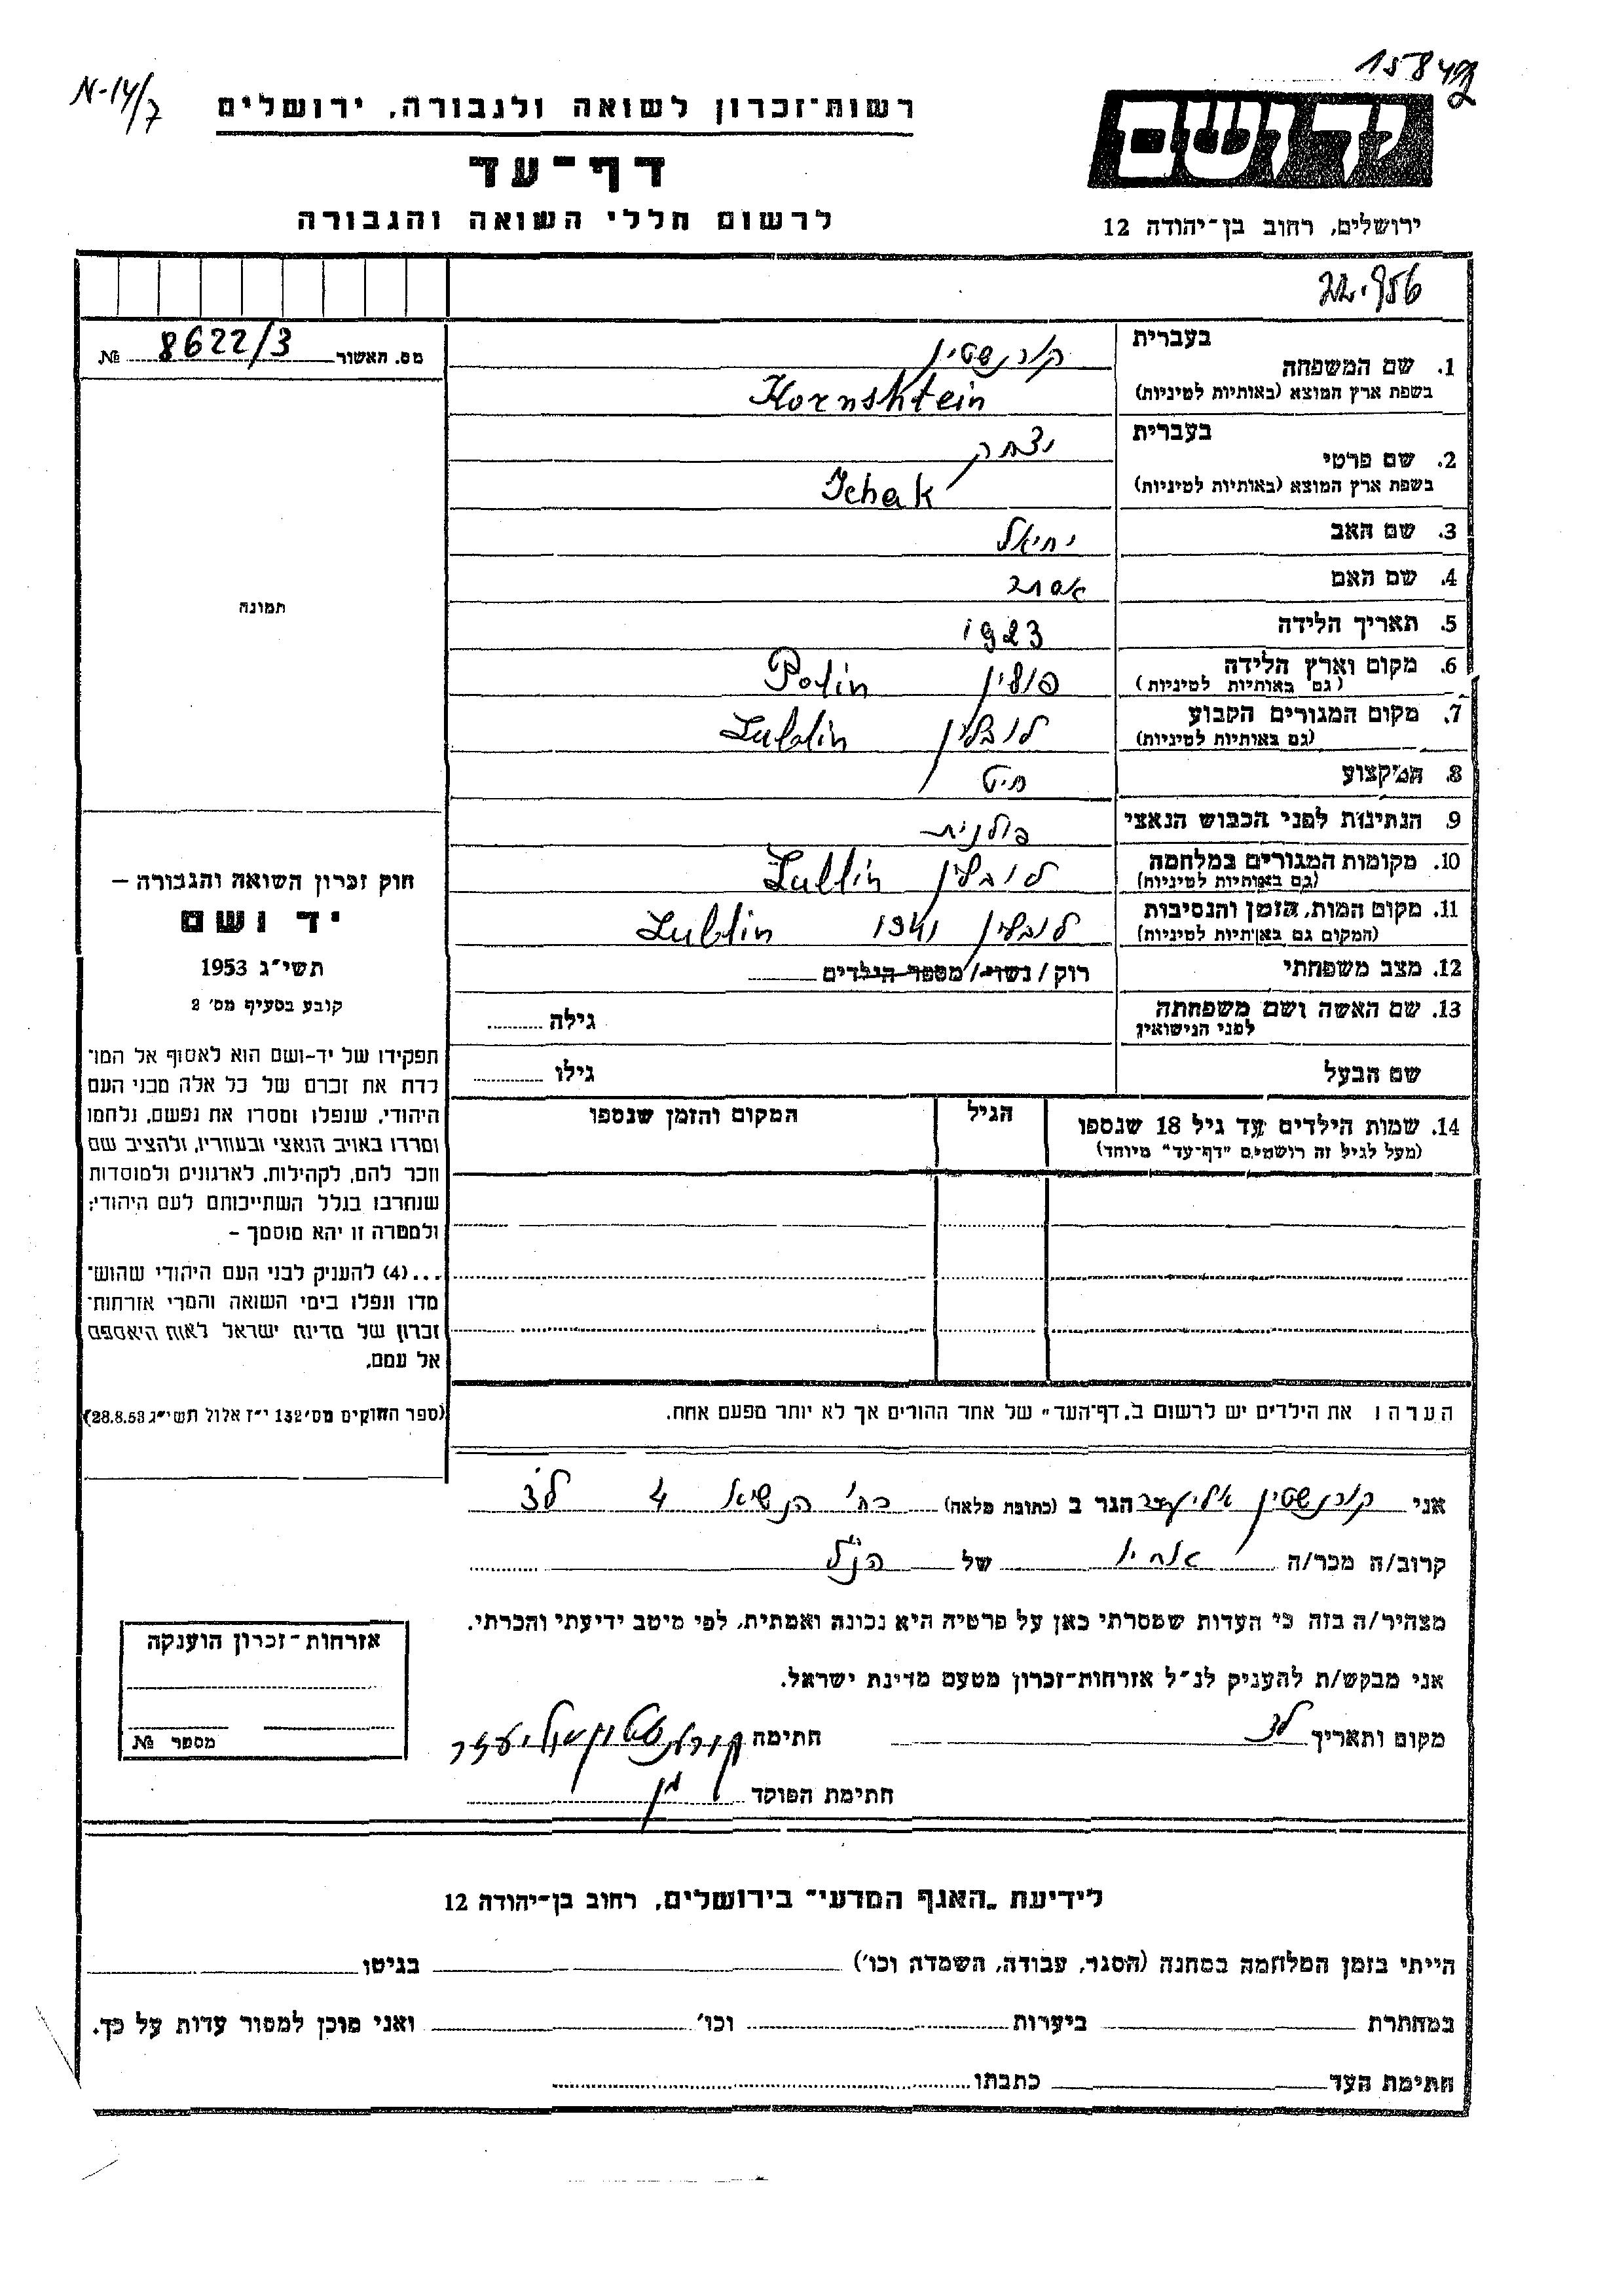 15848
N-14/7
רשות־זכרון לשואה ולגבורה, ירושלים
יד ושם
דף־עד
לרשום חללי השואה והגבורה
ירושלים, רחוב בן־יהודה 12
22.956
מס. האשור 8622/3 №
בעברית קורנשטיין
1. שם המשפחה
בשפת ארץ המוצא (באותיות לטיניות) Kornshtein
בעברית יצחק
2. שם פרטי
בשפת ארץ המוצא (באותיות לטיניות) Ichak
3. שם האב יחיאל
4. שם האם אסתר
תמונה
5. תאריך הלידה 1923
6. מקום וארץ הלידה פולין Polin
(גם באותיות לטיניות)
7. מקום המגורים הקבוע לובלין Lublin
(גם באותיות לטיניות)
8. המקצוע חיט
9. הנתינות לפני הכבוש הנאצי פולנית
10. מקומות המגורים במלחמה לובלין Lublin
(גם באותיות לטיניות)
11. מקום המות, הזמן והנסיבות לובלין 1941 Lublin
(המקום גם באותיות לטיניות)
12. מצב משפחתי רוק / נשוי / מספר הילדים
13. שם האשה ושם משפחתה גילה
לפני הנישואין
שם הבעל גילו
14. שמות הילדים עד גיל 18 שנספו הגיל המקום והזמן שנספו
(מעל לגיל זה רושמים "דף־עד" מיוחד)
חוק זכרון השואה והגבורה –
יד ושם
תשי"ג 1953
קובע בסעיף מס' 2
תפקידו של יד-ושם הוא לאסוף אל המו־
לדת את זכרם של כל אלה מבני העם
היהודי, שנפלו ומסרו את נפשם, נלחמו
ומרדו באויב הנאצי ובעוזריו, ולהציב שם
וזכר להם, לקהילות, לארגונים ולמוסדות
שנחרבו בגלל השתייכותם לעם היהודי;
ולמטרה זו יהא מוסמך –
...(4) להעניק לבני העם היהודי שהוש־
מדו ונפלו בימי השואה והמרי אזרחות־
זכרון של מדינת ישראל לאות היאספם
אל עמם.
(ספר החוקים מס' 132 י"ז אלול תשי"ג 28.8.53)
הערה: את הילדים יש לרשום ב„דף־העד" של אחד ההורים אך לא יותר מפעם אחת.
אני קורנשטיין אליעזר הגר ב (כתובת מלאה) רח' הנשיא 4 לוד
קרוב/ה מכר/ה אחיו של הנ"ל
מצהיר/ה בזה כי העדות שמסרתי כאן על פרטיה היא נכונה ואמתית, לפי מיטב ידיעתי והכרתי.
אני מבקש/ת להעניק לנ"ל אזרחות-זכרון מטעם מדינת ישראל.
מקום ותאריך לוד חתימה קורנשטיין אליעזר
חתימת הפוקד
אזרחות־זכרון הוענקה
מספר №
לידיעת „האגף המדעי" בירושלים, רחוב בן־יהודה 12
הייתי בזמן המלחמה במחנה (הסגר, עבודה, השמדה וכו') בגיטו
במחתרת ביערות וכו' ואני מוכן למסור עדות על כך.
חתימת העד כתבתו